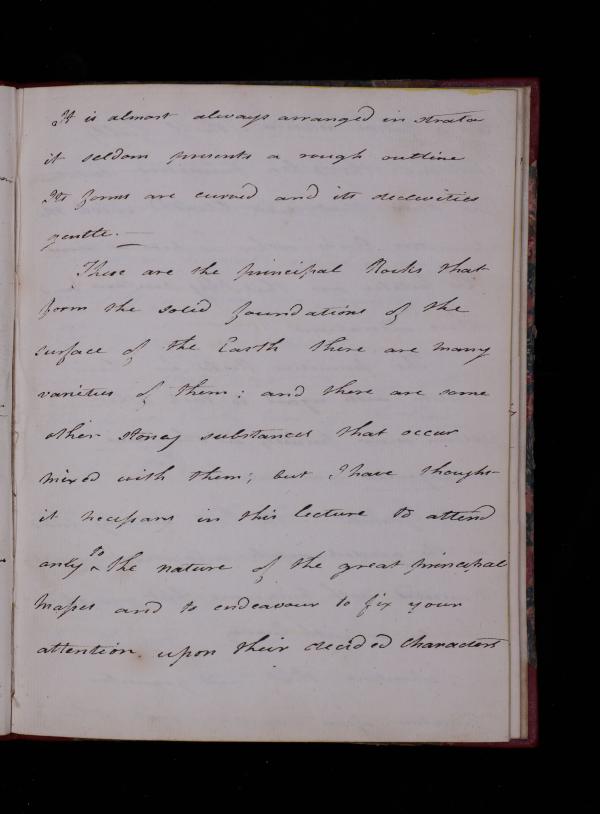 It is almost always arranged in strata
it seldom presents a rough outline
Its forms are curved and its declivities
gentle. —
These are the principal Rocks that
form the solid foundations of the
surface of the Earth there are many
varieties of them; and there are some
other stoney substances that occur
mixed with them; but I have thought
it necessary in this lecture to attend
only to the nature of the great principal
masses and to endeavour to fix your
attention upon their decided characters